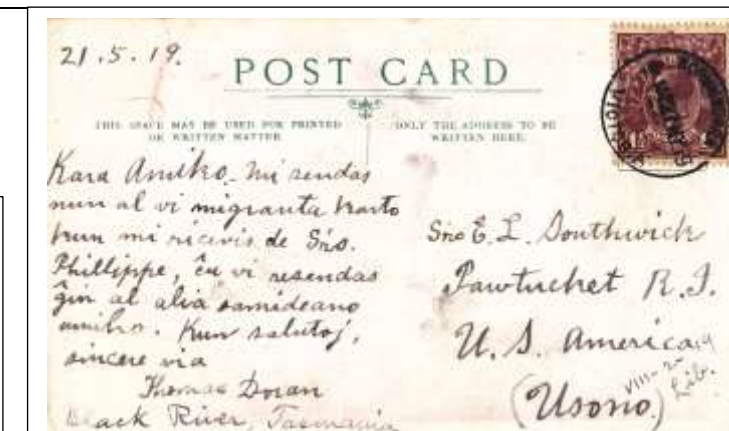 21.5.19.
POST CARD
THIS SPACE MAY BE USED FOR PRINTED
OR WRITTEN MATTER.
ONLY THE ADDRESS TO BE
WRITTEN HERE.
Kara Amiko. Mi sendas
nun al vi migranta karto
kun mi ricevis de Sro.
Phillippe, ĉu vi resendas
ĝin al alia samideano
amiko. Kun salutoj,
sincere via
Thomas Doran
Black River, Tasmania
Sro E. L. Southwick
Pawtucket R.I.
U. S. America
(Usono.)
VIII-2-
Lib.